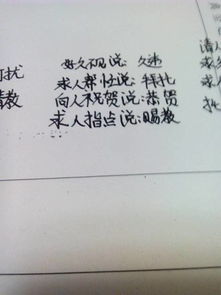 好久不见说:久违
扰 求人帮忙说:拜托
教 向人祝贺说:恭贺
求人指点说:赐教